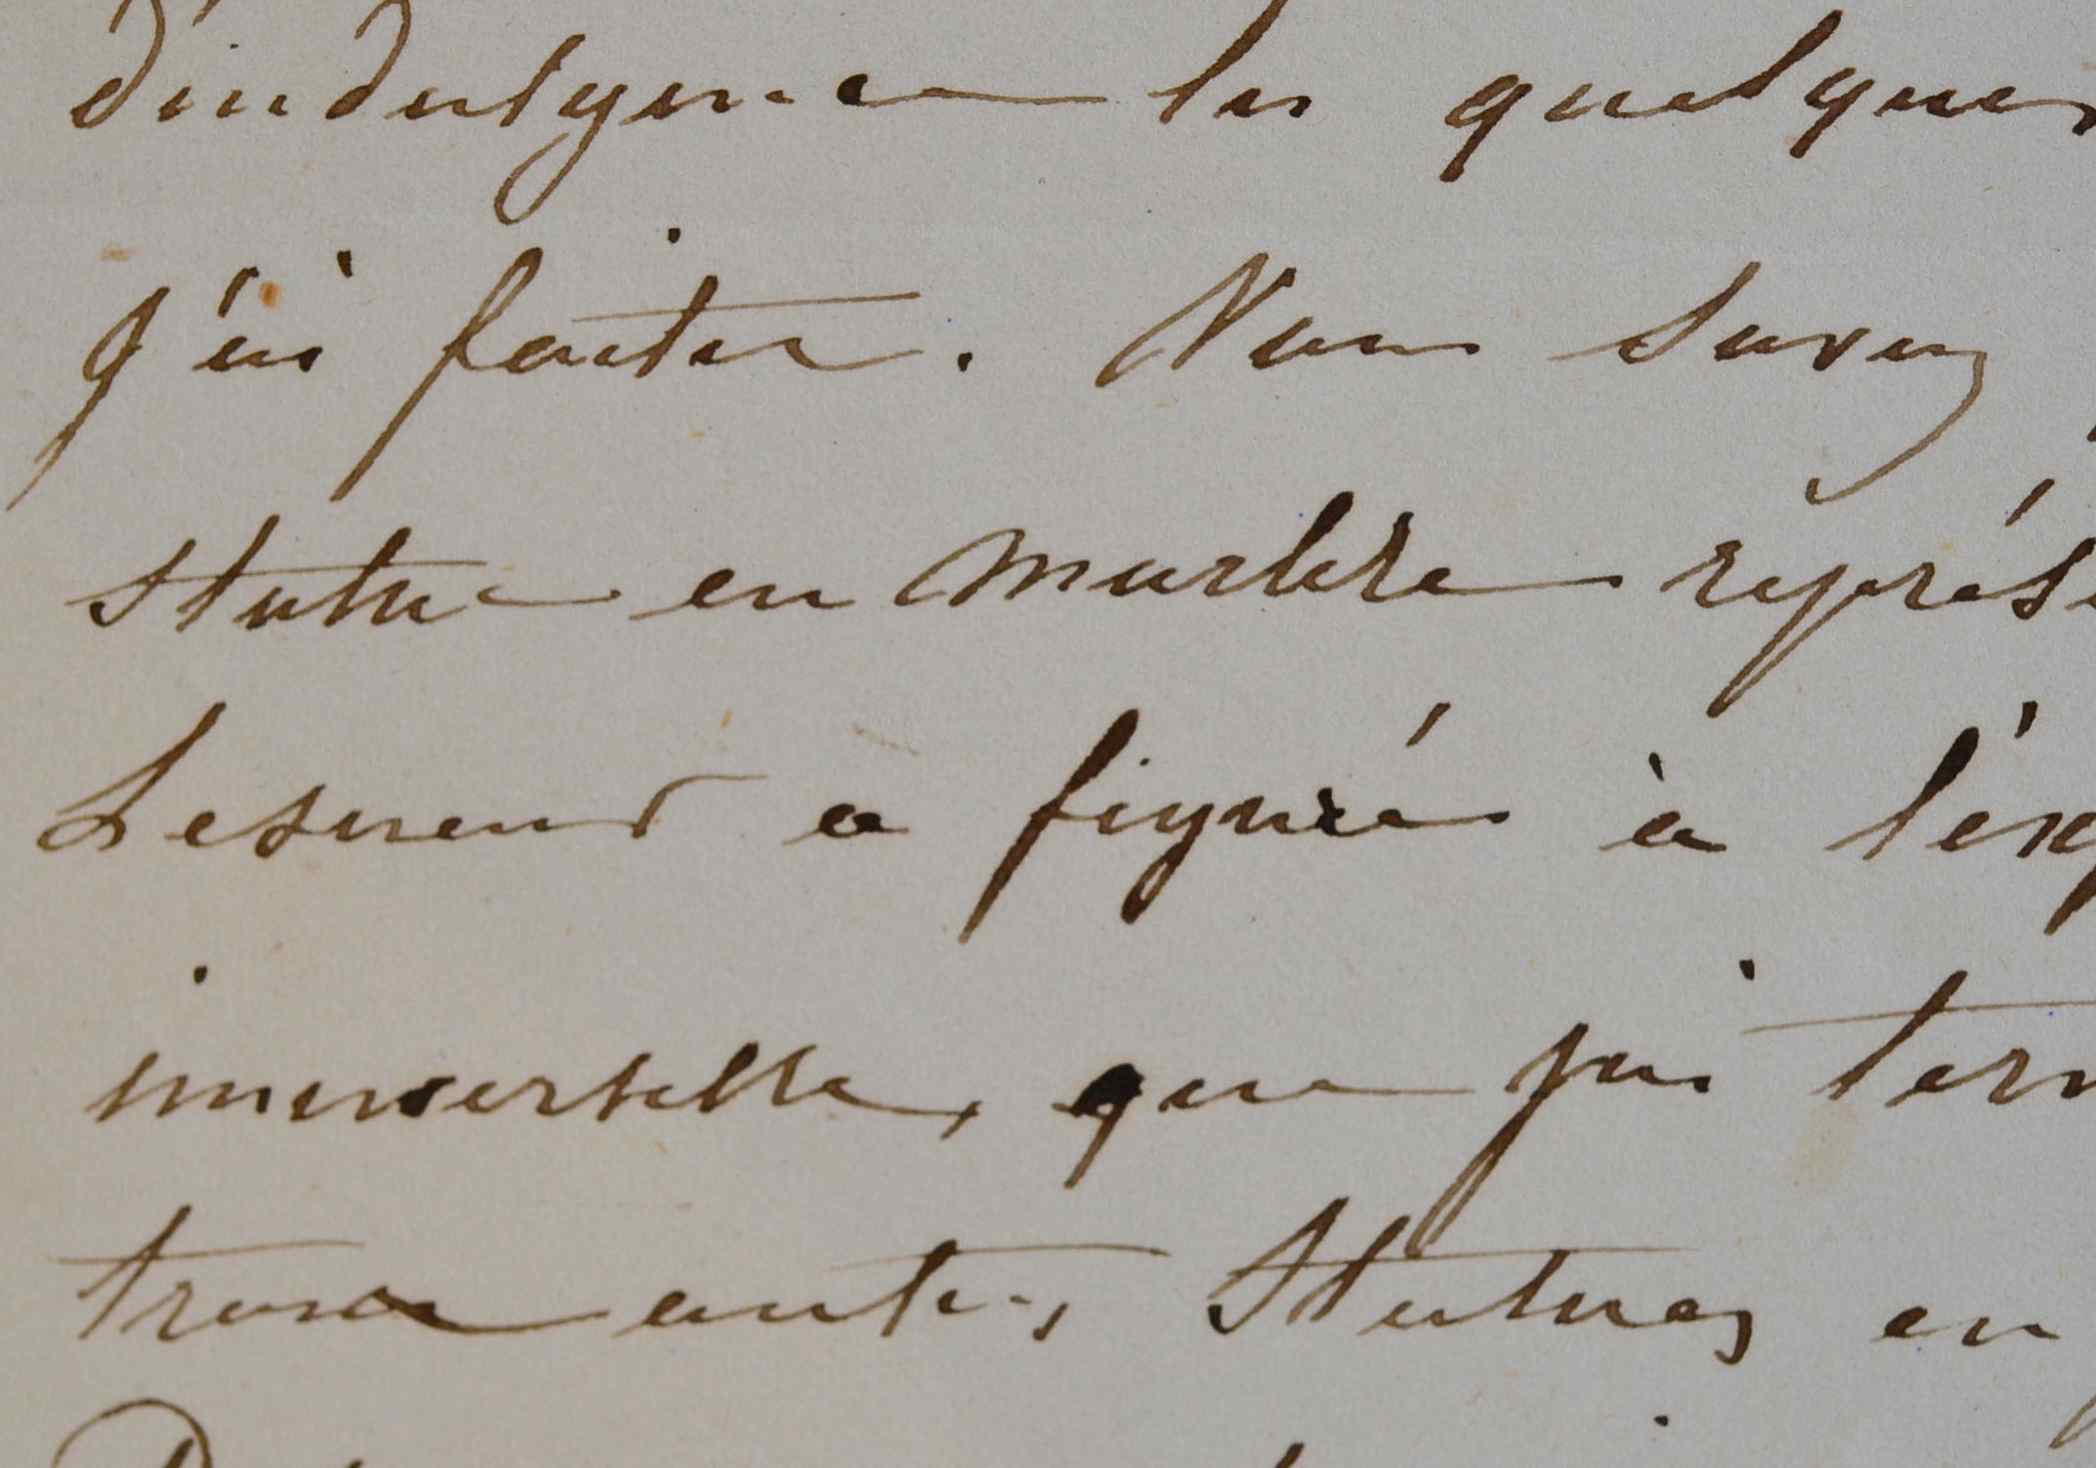 d'indulgence les quelques
j'ai faites. Vous savez
statue en marbre représe
Lesueur a figuré à l'exp
universelle, que j'ai term
trois autres statues en